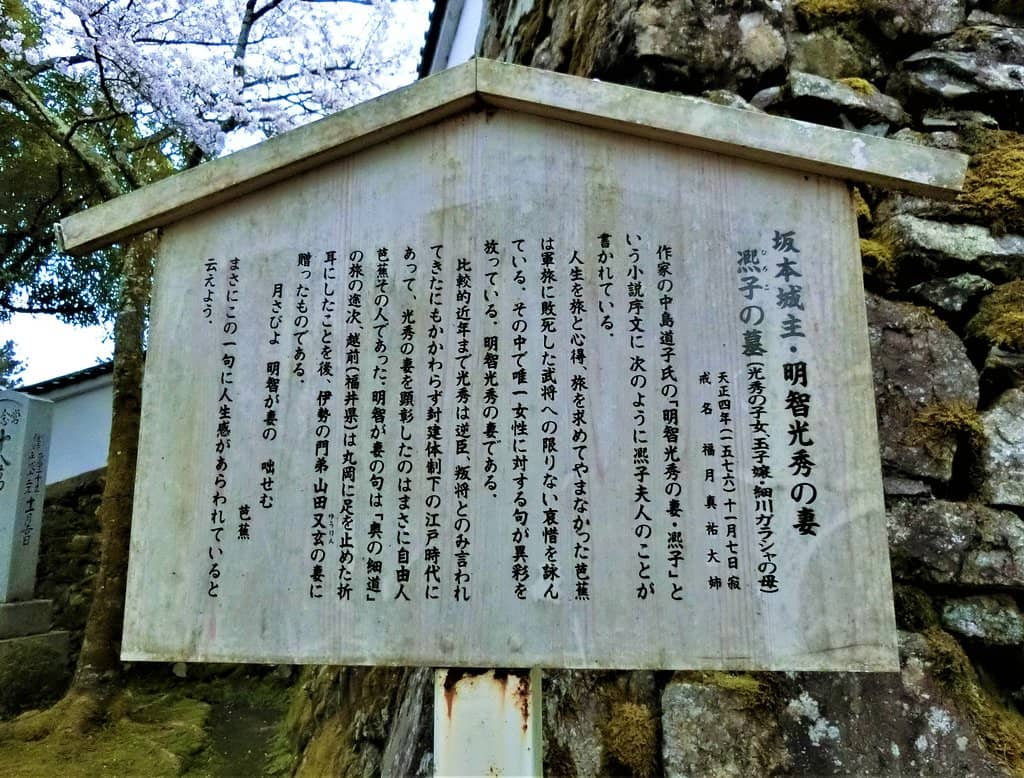 坂本城主・明智光秀の妻
凞子の墓(光秀の子女、玉子嬢・細川ガラシャの母)
ひろこ
天正四年(一五七六)十一月七日寂
戒名 福月真祐大姉
作家の中島道子氏の「明智光秀の妻・凞子」と
いう小説序文に 次のように凞子夫人のことが
書かれている。
人生を旅と心得、旅を求めてやまなかった芭蕉
は軍旅に敗死した武将への限りない哀惜を詠ん
でいる、その中で唯一女性に対する句が異彩を
放っている。明智光秀の妻である。
比較的近年まで光秀は逆臣、叛将とのみ言われ
てきたにもかかわらず封建体制下の江戸時代に
あって、光秀の妻を顕彰したのはまさに自由人
芭蕉その人であった。明智が妻の句は「奥の細道」
の旅の途次、越前(福井県)は丸岡に足を止めた折
耳にしたことを後、伊勢の門弟山田又玄の妻に
ゆうげん
贈ったものである。
月さびよ 明智が妻の 咄せむ
芭蕉
まさにこの一句に人生感があらわれていると
云えよう。